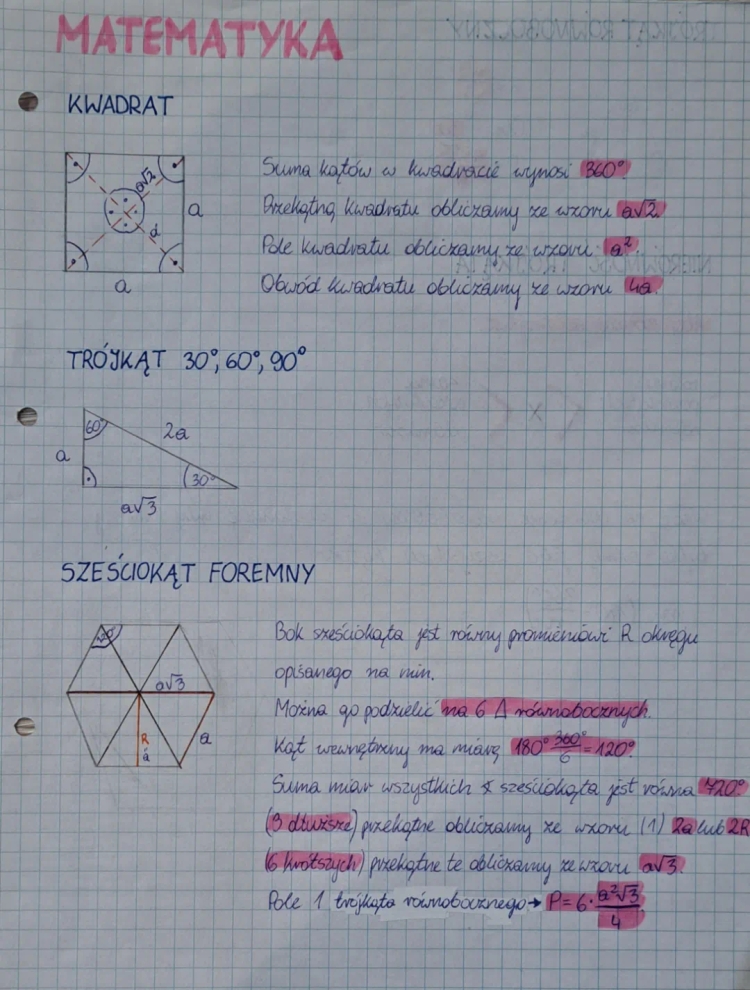 MATEMATYKA
KWADRAT
a√2
d
a
a
Suma kątów w kwadracie wynosi 360°.
Przekątną kwadratu obliczamy ze wzoru a√2.
Pole kwadratu obliczamy ze wzoru a².
Obwód kwadratu obliczamy ze wzoru 4a.
TRÓJKĄT 30°, 60°, 90°
60°
2a
a
30°
a√3
SZEŚCIOKĄT FOREMNY
a√3
R
a
a
Bok sześciokąta jest równy promieniowi R okręgu
opisanego na nim.
Można go podzielić na 6 Δ równobocznych.
Kąt wewnętrzny ma miarę 180° 360°/6 = 120°.
Suma miar wszystkich ∢ sześciokąta jest równa 720°
(3 dłuższe) przekątne obliczamy ze wzoru (1) 2a lub 2R
(6 krótszych) przekątne te obliczamy ze wzoru a√3.
Pole 1 trójkąta równobocznego → P = 6 · a²√3/4